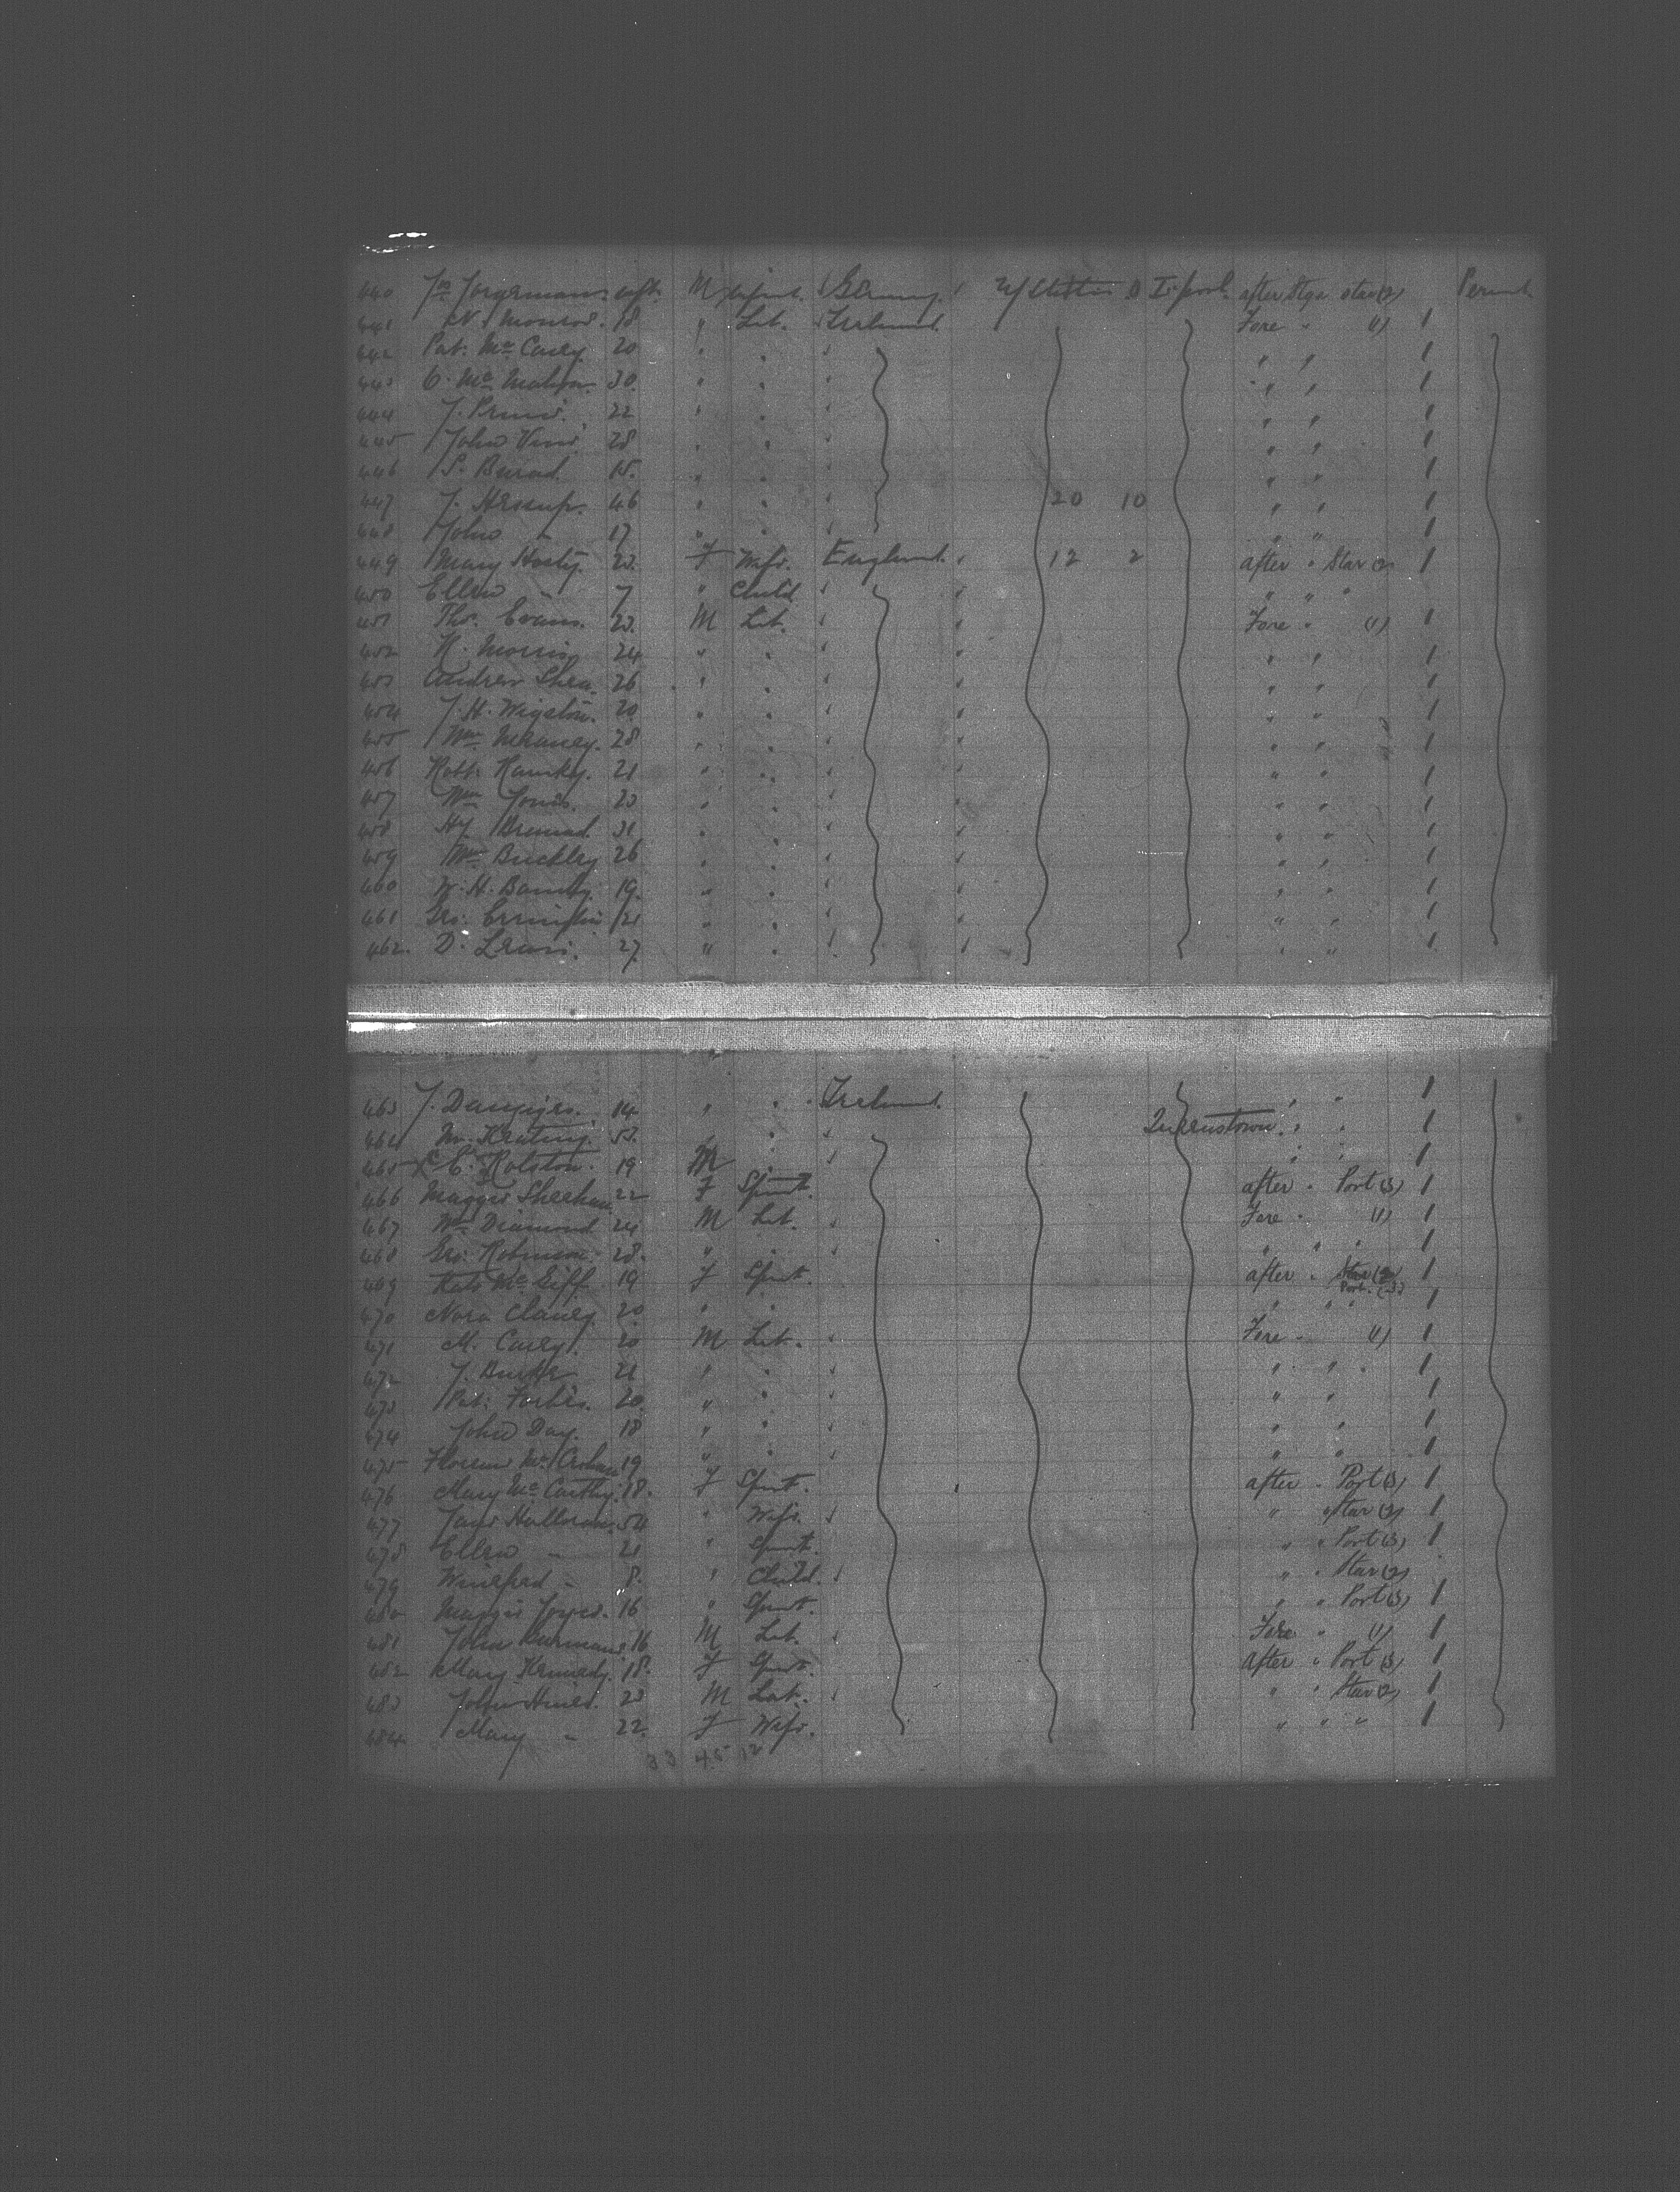 440 Jno Jorgerman inft. M Infnt. Germany U/States 0 L'pool after Stge star (2) Permt
441 N. Monrod. 18 " Lab. Ireland Fore " (1) 1
442 Pat. Mc Carey 20 " " " " 1
443 C. Mc Mahon 30 " " " " 1
444 J. 22 " " " " 1
445 John 28 " " " " 1
446 S. 15 " " " " 1
447 J. 46 " " 20 10 " " 1
448 John - 17 " " " " 1
449 Mary Hosty 23 F Wife England 12 2 after " Star (2) 1
450 Ellen - 7 " Child " " "
451 Thos. Evans. 23 M Lab. Fore " (1) 1
452 R. Morris 24 " " " " 1
453 Andrew Shea. 26 " " " " 1
454 J. H. Wigston. 20 " " " " 1
455 Wm 28 " " " " 1
456 Robt. 21 " " " " 1
457 Wm Jones. 23 " " " " 1
458 Hy 31 " " " " 1
459 Wm Buckley 26 " " " " 1
460 W. H. 19 " " " " 1
461 Geo. Errington 21 " " " " 1
462. D. Lewis. 27 " " " " 1
463 J. 14 " " Ireland " " 1
464 M. Keating 53 " " Queenstown " " 1
465 X E. Rolston. 19 M " " " 1
466 Maggie Sheehan 22 F Spnst. after " Port (3) 1
467 Wm Diamond 24 M Lab. Fore " (1) 1
468 Geo. Robinson 28. " " " " " 1
469 Kate Mc Giff 19 F Spnst. after " Star (2) Port (3) 1
470 Nora Clancy 20 " " " " " 1
471 M. Carey. 20 M Lab. Fore " (1) 1
472 J. Burke 21 " " " " " 1
473 Pat. Forbes. 20 " " " " 1
474 John Day. 18 " " " " 1
475 Florence Mc 19 " " " " 1
476 Mary Mc Carthy. 18. F Spnst. after " Port (3) 1
477 Jane Halloran 54 " Wife. " " Star (2) 1
478 Ellen - 21 " Spnst. " " Port (3) 1
479 Winifred - 8. " Child. " " Star (2)
480 Maggie Joyce. 16 " Spnst. " " Port (3) 1
481 John 16 M Lab. Fore " (1) 1
482 Mary Kennedy. 18. F Spnst. after " Port (3) 1
483 John Hines. 23 M Lab. " " Star (2) 1
484. Mary - 22 F Wife. " " " 1
33 45 12